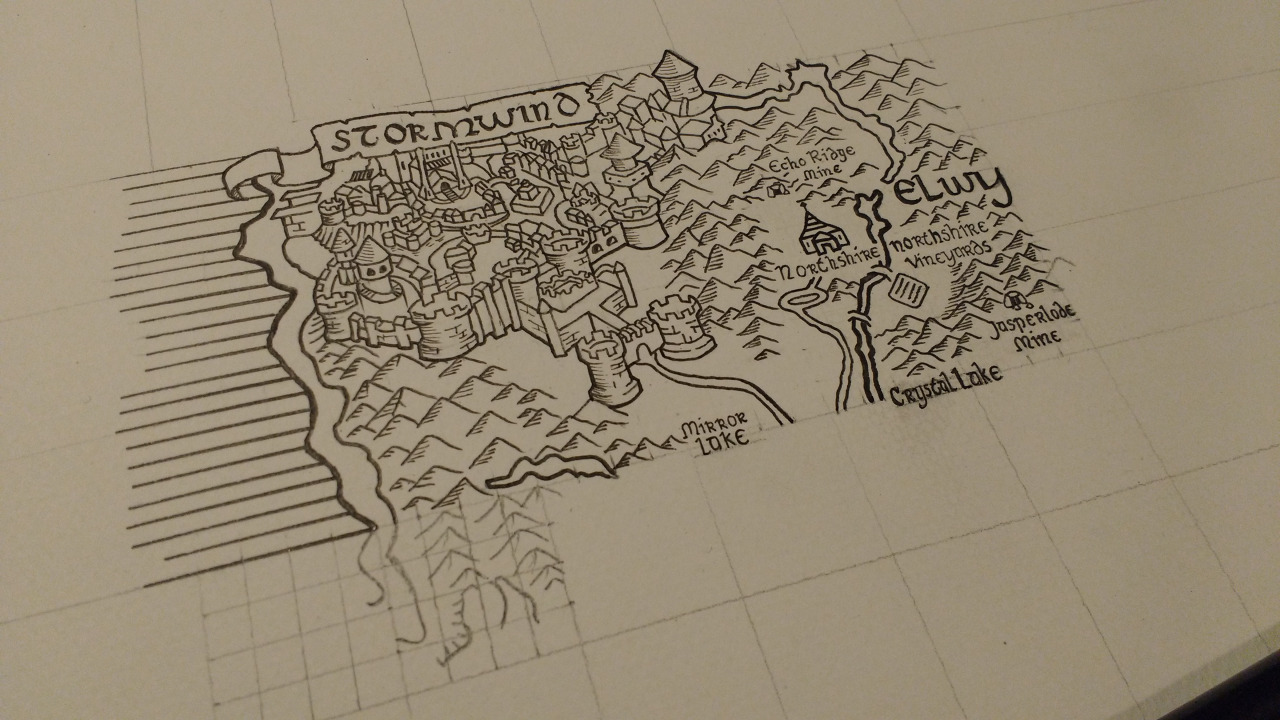 STORMWIND
Echo Ridge
Mine
ELWY
NORTHSHIRE
NORTHSHIRE
Vineyards
Jasperlode
Mine
Crystal Lake
MIRROR
LAKE